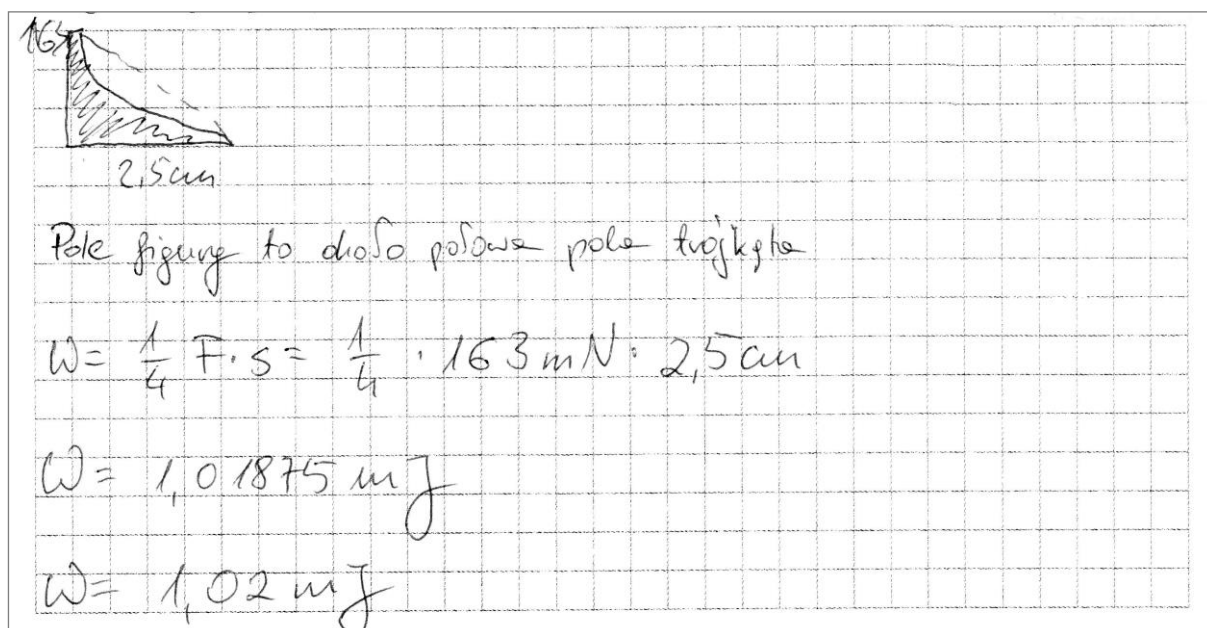 163
2,5cm
Pole figury to około połowa pola trójkąta
W= 1/4 F·s = 1/4 · 163mN · 2,5cm
W= 1,01875 mJ
W= 1,02 mJ